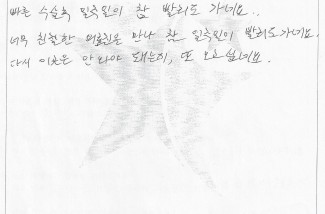 빠른 수술후 일주일이 참 빨리도 가네요..
너무 친절한 의료진을 만나 참 일주일이 빨리도가네요.
다시 이곳은 안와야 돼는데, 또 오고싶네요.